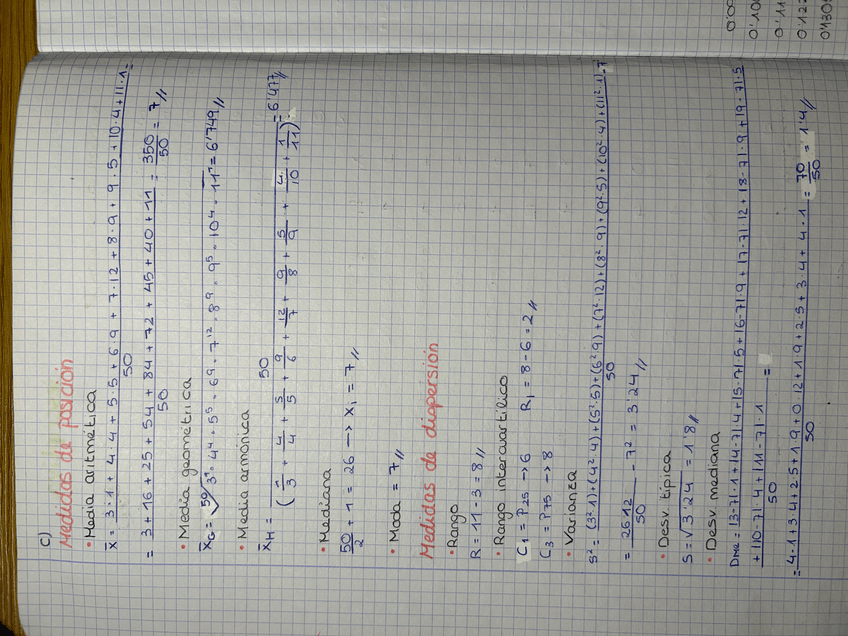 c)
Medidas de posición
• Media aritmética
x̄ = 3·1 + 4·4 + 5·5 + 6·9 + 7·12 + 8·9 + 9·5 + 10·4 + 11·1 =
50
= 3 + 16 + 25 + 54 + 84 + 72 + 45 + 40 + 11 = 350 = 7 //
50 50
• Media geométrica
x̄G = ⁵⁰√3¹ · 4⁴ · 5⁵ · 6⁹ · 7¹² · 8⁹ · 9⁵ · 10⁴ · 11¹ = 6'749 //
• Media armónica
x̄H = 50 = 6'477 //
(1/3 + 4/4 + 5/5 + 9/6 + 12/7 + 9/8 + 5/9 + 4/10 + 1/11)
• Mediana
50/2 + 1 = 26 → x₁ = 7 //
• Moda = 7 //
Medidas de dispersión
• Rango
R = 11 - 3 = 8 //
• Rango intercuartílico
C₁ = P₂₅ → 6 R₁ = 8 - 6 = 2 //
C₃ = P₇₅ → 8
• Varianza
s² = (3²·1) + (4²·4) + (5²·5) + (6²·9) + (7²·12) + (8²·9) + (9²·5) + (10²·4) + (11²·1) - 7
50
= 2612/50 - 7² = 3'24 //
• Desv. típica
S = √3'24 = 1'8 //
• Desv. mediana
Dme = |3-7|·1 + |4-7|·4 + |5-7|·5 + |6-7|·9 + |7-7|·12 + |8-7|·9 + |9-7|·5
+ |10-7|·4 + |11-7|·1 =
50
= 4·1 + 3·4 + 2·5 + 1·9 + 0·12 + 1·9 + 2·5 + 3·4 + 4·1 = 70 = 1'4 //
50 50